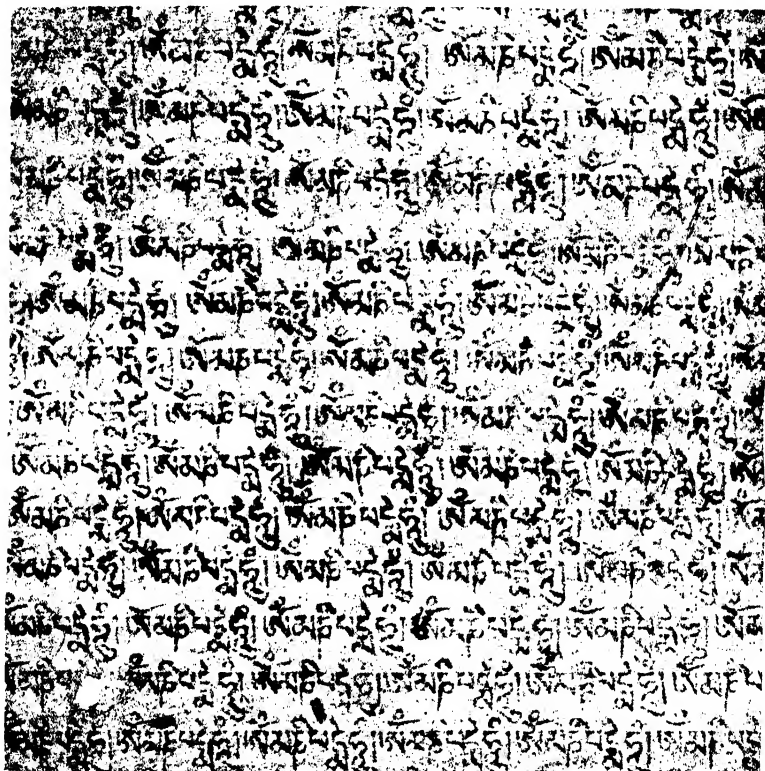 ཨོཾ་མ་ཎི་པདྨེ་ཧཱུྃ། ཨོཾ་མ་ཎི་པདྨེ་ཧཱུྃ། ཨོཾ་མ་ཎི་པདྨེ་ཧཱུྃ། ཨོཾ་མ་ཎི་པདྨེ་ཧཱུྃ། ཨོཾ་མ་ཎི་པདྨེ་ཧཱུྃ། ཨོཾ
ཨོཾ་མ་ཎི་པདྨེ་ཧཱུྃ། ཨོཾ་མ་ཎི་པདྨེ་ཧཱུྃ། ཨོཾ་མ་ཎི་པདྨེ་ཧཱུྃ། ཨོཾ་མ་ཎི་པདྨེ་ཧཱུྃ། ཨོཾ་མ་ཎི་པདྨེ་ཧཱུྃ། ཨོཾ
ཨོཾ་མ་ཎི་པདྨེ་ཧཱུྃ། ཨོཾ་མ་ཎི་པདྨེ་ཧཱུྃ། ཨོཾ་མ་ཎི་པདྨེ་ཧཱུྃ། ཨོཾ་མ་ཎི་པདྨེ་ཧཱུྃ། ཨོཾ་མ་ཎི་པདྨེ་ཧཱུྃ། ཨོཾ་མ
ཨོཾ་མ་ཎི་པདྨེ་ཧཱུྃ། ཨོཾ་མ་ཎི་པདྨེ་ཧཱུྃ། ཨོཾ་མ་ཎི་པདྨེ་ཧཱུྃ། ཨོཾ་མ་ཎི་པདྨེ་ཧཱུྃ། ཨོཾ་མ་ཎི་པདྨེ་ཧཱུྃ། ཨོཾ་མ་ཎི
ཨོཾ་མ་ཎི་པདྨེ་ཧཱུྃ། ཨོཾ་མ་ཎི་པདྨེ་ཧཱུྃ། ཨོཾ་མ་ཎི་པདྨེ་ཧཱུྃ། ཨོཾ་མ་ཎི་པདྨེ་ཧཱུྃ། ཨོཾ་མ་ཎི་པདྨེ་ཧཱུྃ། ཨོཾ
ཨོཾ་མ་ཎི་པདྨེ་ཧཱུྃ། ཨོཾ་མ་ཎི་པདྨེ་ཧཱུྃ། ཨོཾ་མ་ཎི་པདྨེ་ཧཱུྃ། ཨོཾ་མ་ཎི་པདྨེ་ཧཱུྃ། ཨོཾ་མ་ཎི་པདྨེ་ཧཱུྃ།
ཨོཾ་མ་ཎི་པདྨེ་ཧཱུྃ། ཨོཾ་མ་ཎི་པདྨེ་ཧཱུྃ། ཨོཾ་མ་ཎི་པདྨེ་ཧཱུྃ། ཨོཾ་མ་ཎི་པདྨེ་ཧཱུྃ། ཨོཾ་མ་ཎི་པདྨེ་ཧཱུྃ།
ཨོཾ་མ་ཎི་པདྨེ་ཧཱུྃ། ཨོཾ་མ་ཎི་པདྨེ་ཧཱུྃ། ཨོཾ་མ་ཎི་པདྨེ་ཧཱུྃ། ཨོཾ་མ་ཎི་པདྨེ་ཧཱུྃ། ཨོཾ་མ་ཎི་པདྨེ་ཧཱུྃ། ཨོཾ
ཨོཾ་མ་ཎི་པདྨེ་ཧཱུྃ། ཨོཾ་མ་ཎི་པདྨེ་ཧཱུྃ། ཨོཾ་མ་ཎི་པདྨེ་ཧཱུྃ། ཨོཾ་མ་ཎི་པདྨེ་ཧཱུྃ། ཨོཾ་མ་ཎི་པདྨེ་ཧཱུྃ། ཨོཾ་མ
ཨོཾ་མ་ཎི་པདྨེ་ཧཱུྃ། ཨོཾ་མ་ཎི་པདྨེ་ཧཱུྃ། ཨོཾ་མ་ཎི་པདྨེ་ཧཱུྃ། ཨོཾ་མ་ཎི་པདྨེ་ཧཱུྃ། ཨོཾ་མ་ཎི་པདྨེ་ཧཱུྃ། ཨོཾ་མ
ཨོཾ་མ་ཎི་པདྨེ་ཧཱུྃ། ཨོཾ་མ་ཎི་པདྨེ་ཧཱུྃ། ཨོཾ་མ་ཎི་པདྨེ་ཧཱུྃ། ཨོཾ་མ་ཎི་པདྨེ་ཧཱུྃ། ཨོཾ་མ་ཎི་པདྨེ་ཧཱུྃ། ཨོཾ་མ
ཨོཾ་མ་ཎི་ ཨོཾ་མ་ཎི་པདྨེ་ཧཱུྃ། ཨོཾ་མ་ཎི་པདྨེ་ཧཱུྃ། ཨོཾ་མ་ཎི་པདྨེ་ཧཱུྃ། ཨོཾ་མ་ཎི་པདྨེ་ཧཱུྃ། ཨོཾ་མ་ཎི་པ
ཨོཾ་མ་ཎི་པདྨེ་ཧཱུྃ། ཨོཾ་མ་ཎི་པདྨེ་ཧཱུྃ། ཨོཾ་མ་ཎི་པདྨེ་ཧཱུྃ། ཨོཾ་མ་ཎི་པདྨེ་ཧཱུྃ། ཨོཾ་མ་ཎི་པདྨེ་ཧཱུྃ། ཨོཾ་མ་ཎི་པ